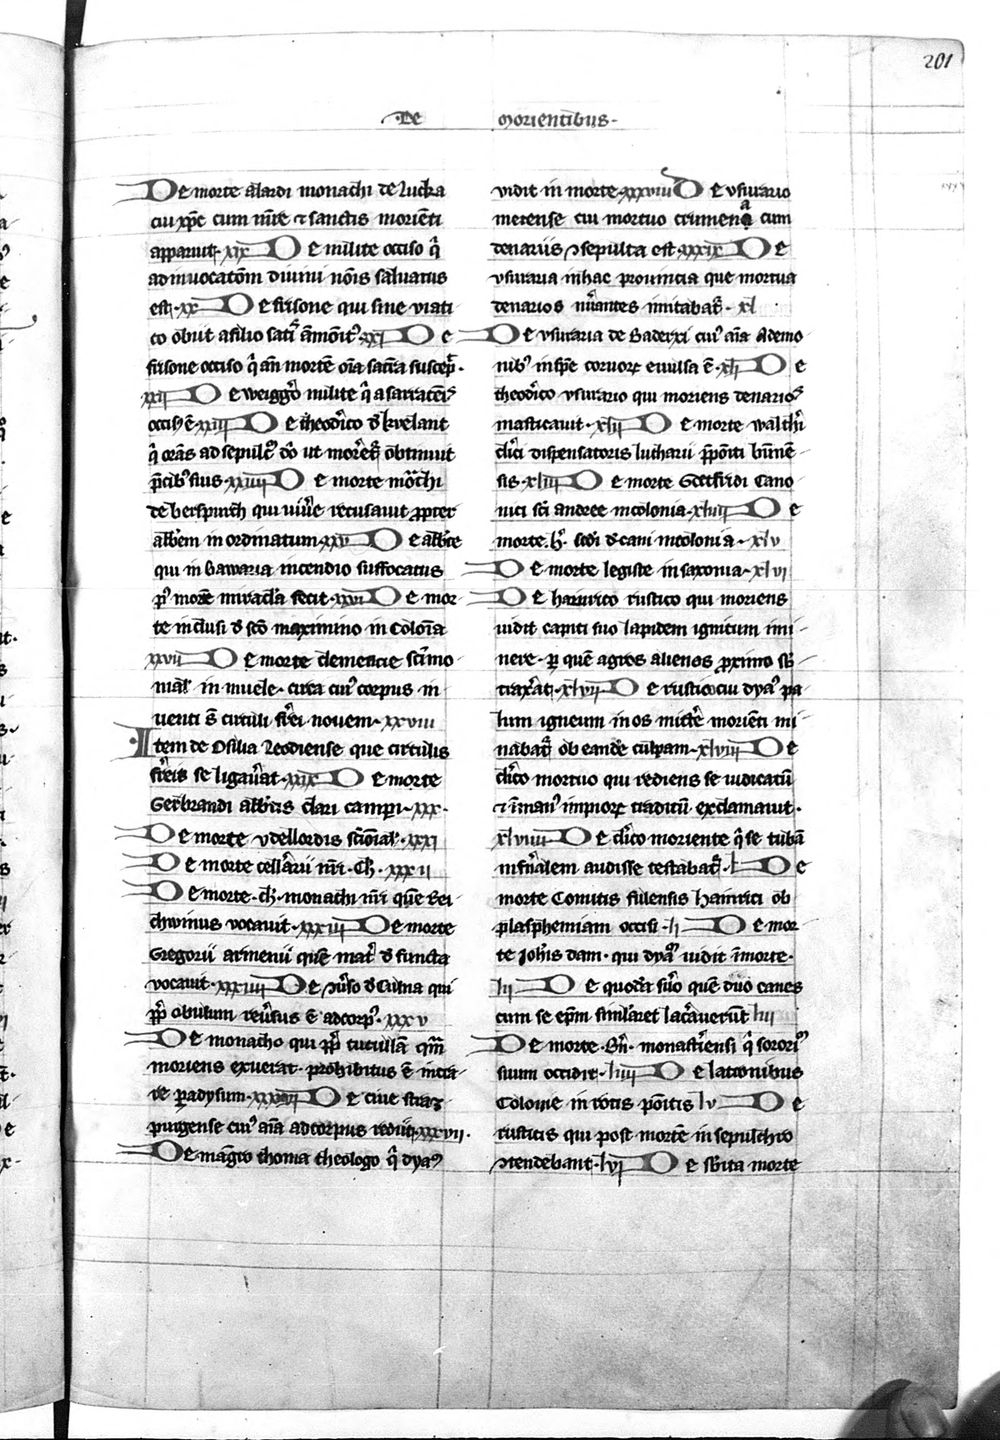 201
·De morientibus·
De morte alardi monachi de lucka
cui xp̄c cum mr̄e ⁊ sanctis moriēti
apparuit· xix De milite occiso q̇
ad inuocatōm diuini nōis saluatus
est· xx De frisone qui sine uiati
co obiit a filio satr̄ āmōit᷒ xxi De
frisone occiso q̇ an̄ mortē oīa sacrā suscep̄·
xxii De milite q̇ a sarracēis
occis᷒ ē xxiii De theodīco
q̇ ad sepulc᷒ obtinuit
p̄cib᷒ suis· xxiiii De morte mōchi
qui uiūe recusauit ꝓpter
abb̄em inordinatum xxv De abb̄te
qui in bawaria incendio suffocatus
p᷒ morē miracl̄a fecit· xxvi De mor
te inclusi d̄ scō maximino in Coloīa
xxvii De morte clementie scīmo
nial᷒ in niuele· circa cui᷒ corpus in
uenti s̄ circuli fr̄ei nouem· xxviii
·Item de Osilia leodiense que circulis
fr̄eis se ligau̅at· xxix De morte
Gerbrandi abb̄tis clari campi· xxx·
De morte vdellordis scīōīal᷒· xxxi
De morte cellārii nr̄i· Ch̄· xxxii
De morte· ch̄· monachi nr̄i quē ri
chwinus vocauit· xxxiii De morte
Gregorii armenii quē mat̄ d̄functa
vocauit· xxxiiii De ꝯu̅so d̄ Cūna qui
ꝓp̄ obulum reu̅sus ē ad corp᷒· xxxv
De monacho qui ꝓp̄ cucullā qm̄
moriens exuerat· prohibitus ē intra
re padysum· De ciue straz
purgense cui᷒ aīa ad corpus rediit· xxxvii·
De magr̄o thoma theologo q̇ dya᷒
vidit in morte· xxxviii De vsurario
metense cui mortuo crumena cum
denariis ꝯsepulta est· xxxix De
vsuraria in hac prouincia que mortua
denarios nūantes imitabat᷒· xl
De vsuraria de Baderxi cui᷒ aīa a demo
nib᷒ in spē corvorꝝ euulsa ē· xli De
theodīco vsurario qui moriens denario᷒
masticauit· xlii De morte walthi
cl̄ici dispensatoris lutharii p̄pōiti būnē
sis· xliii De morte Godefridi Cano
nici scī andree in colonia· xliiii De
morte· h̄· sc̄di d̄cani in colonia· xlv
De morte legiste in saxonia· xlvi
De hainrico rustico qui moriens
uidit capiti suo lapidem ignitum imi
nere· ꝑ quē agros alienos ꝓximo sb̄
traxāt· xlvii De rustico cui dya᷒ pa
lum igneum in os mictē moriēti mi
nabat᷒ ob eandē culpam· xlviii De
cl̄ico mortuo qui rediens se iudicatū
⁊ ī man᷒ impiorꝝ traditū exclamauit·
xlviiii De cl̄ico moriente q̇ se tubā
infn̄alem audisse testabat᷒· l De
morte Comitis iulensis hainrici ob
plasphemiam occisi· li De mor
te joh̄is dam· qui dya᷒ uidit ī morte·
lii De quodā suo quē duo canes
cum se ep̄m simlaret lac̄auerūt liii
De morte· Bn̄· monastīensi q̇ sorori᷒
suum occidit· liiii De latronibus
Colonie in rotis pōitis lv De
rusticis qui post mortē in sepulchro
ꝯtendebant· lvi De sb̄ita morte